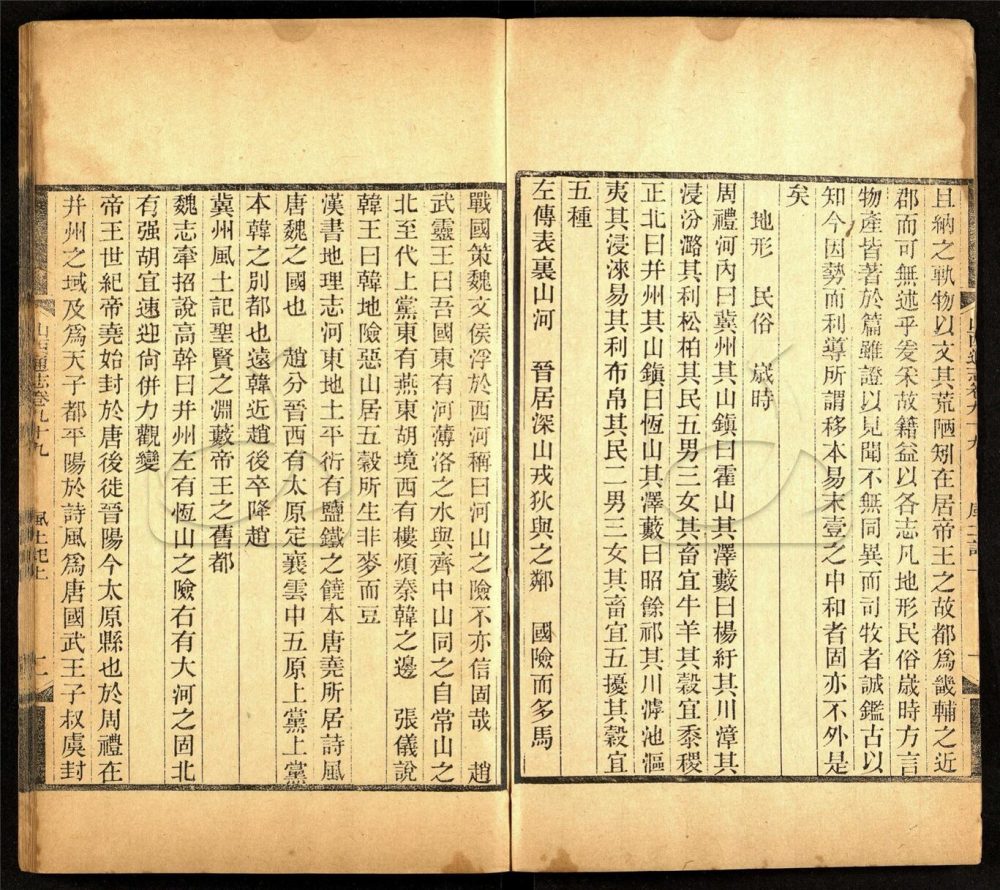 且納之軌物以文其荒陋矧在居帝王之故都爲畿輔之近
郡而可無述乎爰采故籍益以各志凡地形民俗歲時方言
物產皆著於篇雖證以見聞不無同異而司牧者誠鑑古以
知今因勢而利導所謂移本易末壹之中和者固亦不外是
矣
地形 民俗 歲時
周禮河內曰冀州其山鎭曰霍山其澤藪曰楊紆其川漳其
浸汾潞其利松柏其民五男三女其畜宜牛羊其穀宜黍稷
正北曰并州其山鎭曰恆山其澤藪曰昭餘祁其川滹池漚
夷其浸淶易其利布帛其民二男三女其畜宜五擾其穀宜
五種
左傳表裏山河 晉居深山戎狄與之鄰 國險而多馬
戰國策魏文侯浮於西河稱曰河山之險不亦信固哉 趙
武靈王曰吾國東有河薄洛之水與齊中山同之自常山之
北至代上黨東有燕東胡境西有樓煩秦韓之邊 張儀說
韓王曰韓地險惡山居五穀所生非麥而豆
漢書地理志河東地土平衍有鹽鐵之饒本唐堯所居詩風
唐魏之國也 趙分晉西有太原定襄雲中五原上黨上黨
本韓之別都也遠韓近趙後卒降趙
冀州風土記聖賢之淵藪帝王之舊都
魏志牽招說高幹曰并州左有恆山之險右有大河之固北
有强胡宜速迎尙併力觀變
帝王世紀帝堯始封於唐後徙晉陽今太原縣也於周禮在
并州之域及爲天子都平陽於詩風爲唐國武王子叔虞封
山西通志卷九十九 風土記上 二